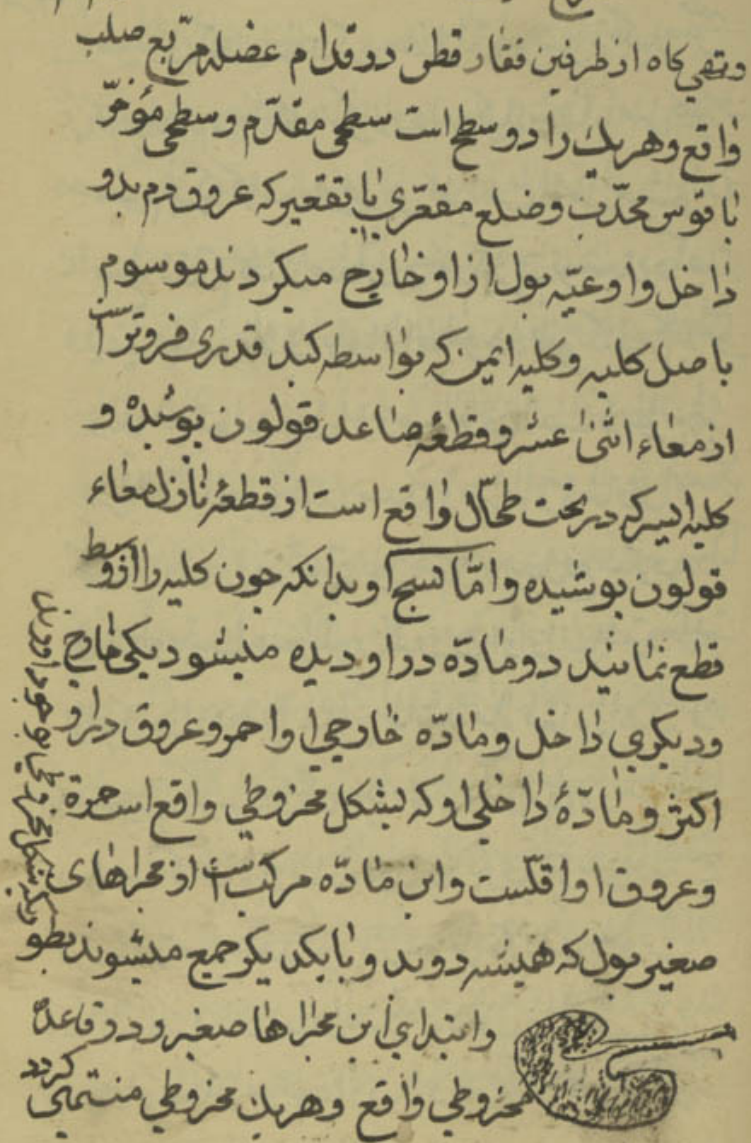 وتهی کاه از طرفین فقار قطن در قدام عضله مربع صلب
واقع وهریك را دو سطح است سطحی مقدّم وسطحی مؤخّر
با قوس محدّب وضلع مقعّری با تقعیر که عروق دم بدو
داخل و اوعیّه بول از او خارج میکردند موسوم
باصل کلیه وکلیه ایمن که بواسطه کبد قدری فروتر است
از معاء اثنی عشر و قطعه صاعد قولون پوشیده و
کلیه ایسر که در تحت طحال واقع است از قطعهٔ نازل معاء
قولون پوشیده وامّا نسج او بدانکه چون کلیه را از وسط
قطع نمائید دو مادّه در او دیده میشود یکی خارج
ودیکری داخل ومادّه خارجی او احمر وعروق در او
اکثر ومادّهٔ داخلی او که بشکل مخروطی واقع است حمرة
وعروق او اقلّست واین مادّه مرکب است از مجراهای
صغیر بول که همیشه دوبد و با یکدیکر جمع میشوند بطو
وابتدای این مجراها صغیر و در قاعدهٔ
مخروطی واقع وهریك مخروطی منتهی کردد
که بشکل مخروطی بوجود آورند